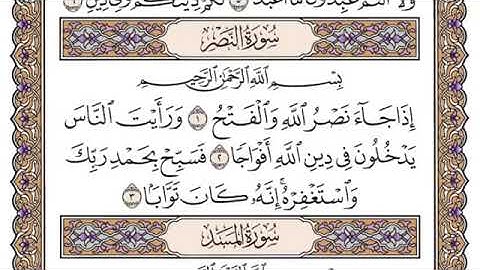 وَلَآ أَنتُمْ عَٰبِدُونَ مَآ أَعْبُدُ ۝٥ لَكُمْ دِينُكُمْ وَلِىَ دِينِ ۝٦
سُورَةُ النَّصْرِ
بِسْمِ ٱللَّهِ ٱلرَّحْمَٰنِ ٱلرَّحِيمِ
إِذَا جَآءَ نَصْرُ ٱللَّهِ وَٱلْفَتْحُ ۝١ وَرَأَيْتَ ٱلنَّاسَ
يَدْخُلُونَ فِى دِينِ ٱللَّهِ أَفْوَاجًا ۝٢ فَسَبِّحْ بِحَمْدِ رَبِّكَ
وَٱسْتَغْفِرْهُ ۚ إِنَّهُۥ كَانَ تَوَّابًۢا ۝٣
سُورَةُ المَسَدِ